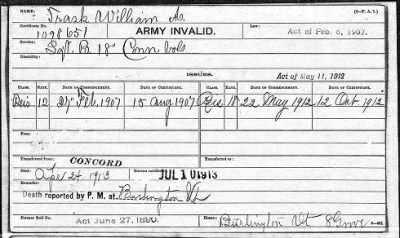 NAME: Trask William A. (3—P. A. I.)
Certificate No. 1098651 ARMY INVALID. Act of Feb. 6, 1907.
Service: Sgt. B 18th Conn. Vols
Disability:
ISSUES. Act of May 11, 1912
CLASS. RATE. DATE OF COMMENCEMENT. DATE OF CERTIFICATE. CLASS. RATE. DATE OF COMMENCEMENT. DATE OF CERTIFICATE.
Reis 12 Feb. 1907 15 Aug 1907 Reis 18 22 May 1912 12 Oct 1912
Transferred from: CONCORD Transferred to:
Died: Apr 24, 1913 JUL 10 1913
Death reported by P. M. at Burlington Vt
Former Roll No. Act June 27, 1890. Home: Burlington Vt